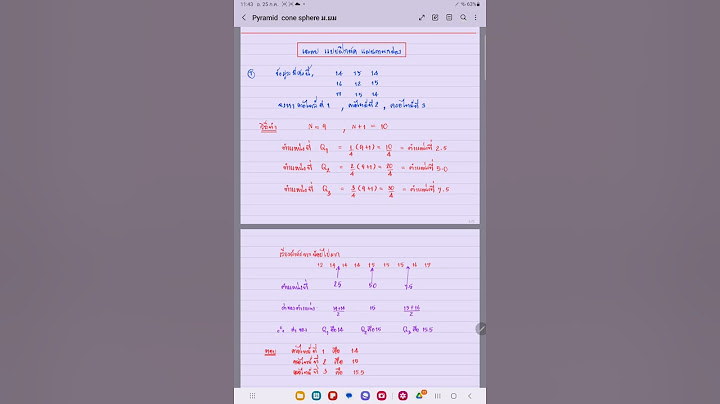 11:43 อ. 25 ก.ค.
63%
Pyramid cone sphere ม.ยม
เฉลย แบบฝึกหัด
① ข้อมูลต่อไปนี้, 14 15 14
16 12 15
17 15 14
จงหา ควอไทล์ที่ 1 , ควอไทล์ที่ 2 , ควอไทล์ที่ 3
วิธีทำ N = 9 , N+1 = 10
ตำแหน่งที่ Q₁ = 1/4 (9+1) = 10/4 = ตำแหน่งที่ 2.5
ตำแหน่งที่ Q₂ = 2/4 (9+1) = 20/4 = ตำแหน่งที่ 5.0
ตำแหน่งที่ Q₃ = 3/4 (9+1) = 30/4 = ตำแหน่งที่ 7.5
เรียงข้อมูลจากน้อยไปมาก
12 14 14 14 15 15 15 16 17
ตำแหน่งที่ 2.5 5.0 7.5
14+14/2 15 15+16/2
∴ Q₁ คือ 14 Q₂ คือ 15 Q₃ คือ 15.5
ตอบ ควอไทล์ที่ 1 คือ 14
ควอไทล์ที่ 2 คือ 15
ควอไทล์ที่ 3 คือ 15.5